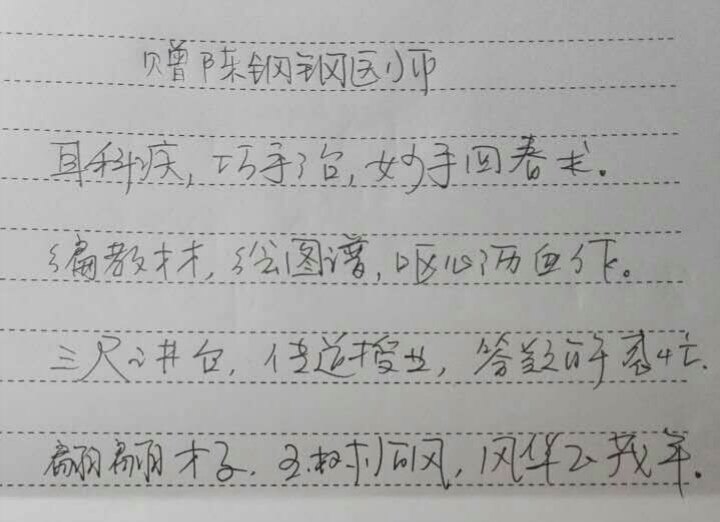 赠陈钢钢医师
耳科疾,巧手治,妙手回春术。
编教材,绘图谱,呕心沥血作。
三尺讲台,传道授业,答疑解惑忙.
翩翩才子.玉树临风,风华正茂年.